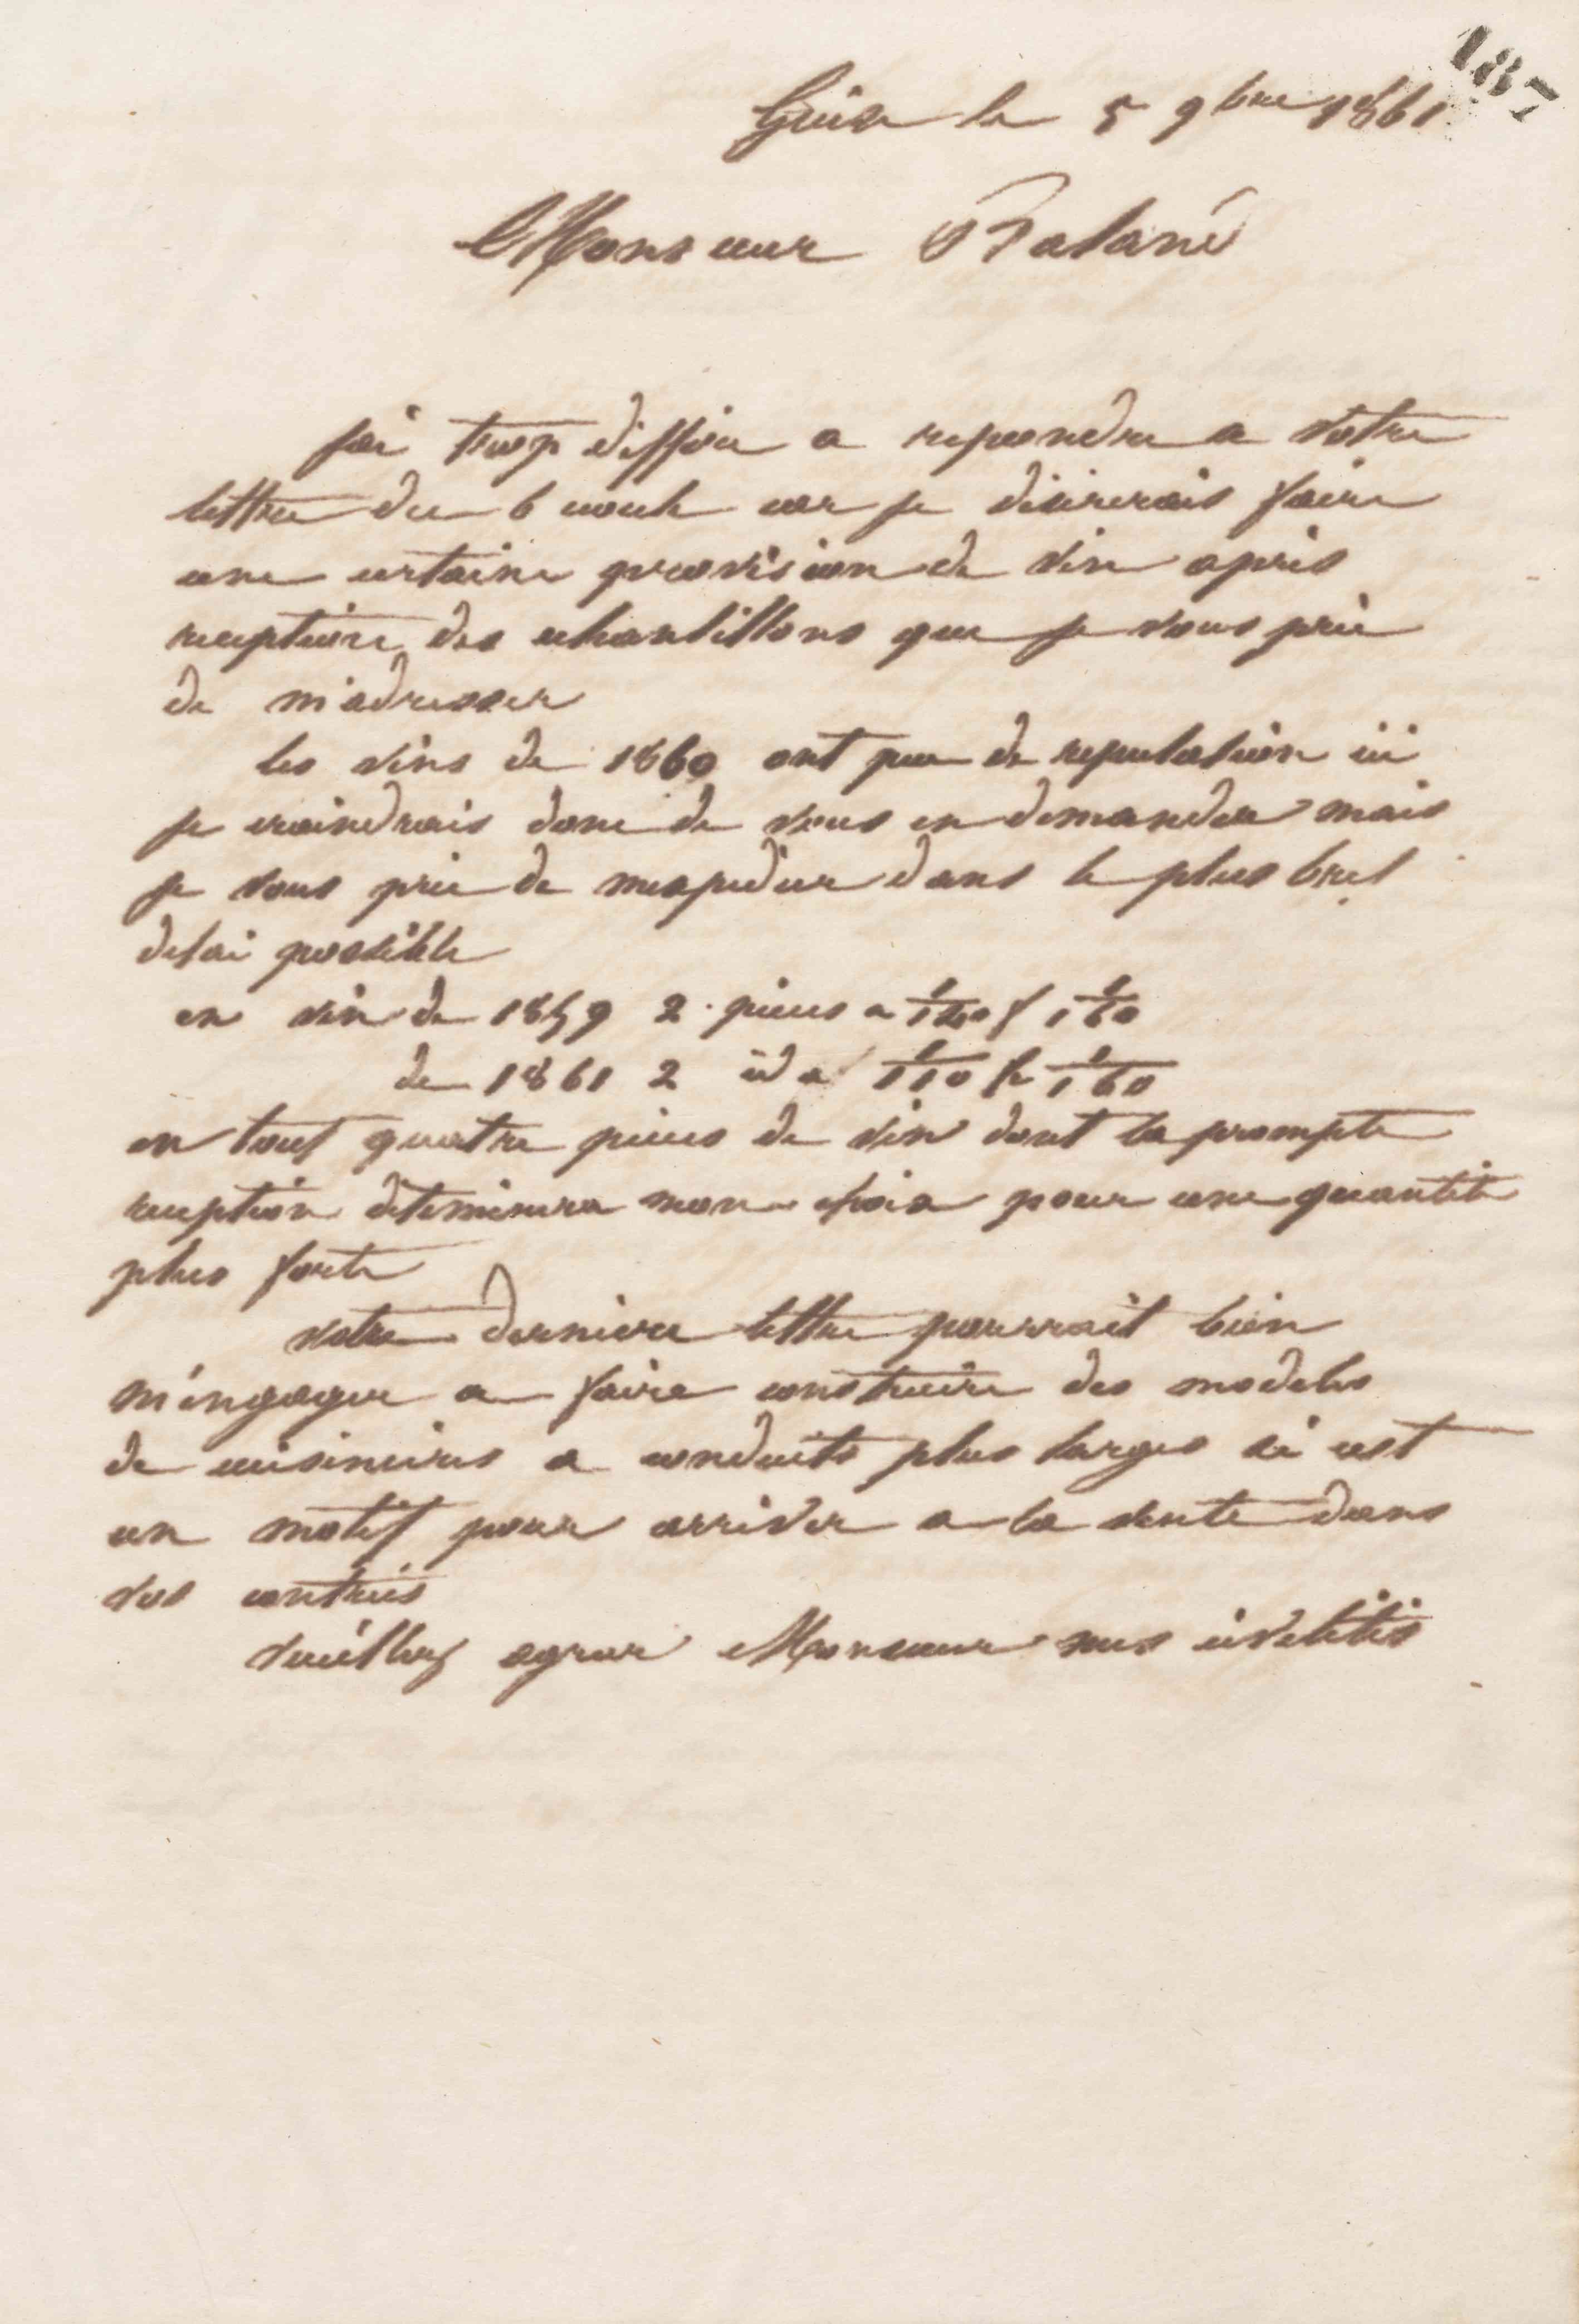 187
Guise le 5 9bre 1861
Monsieur Balané
jai trop differe a repondre a votre
lettre du 6 aout car je désirerais faire
une certaine provision de vin apris
reception des echantillons que je vous prie
de m'adresser
les vins de 1860 ont peu de reputation ici
je craindrais donc de vous en demander mais
je vous prie de mexpedier dans le plus bref
delai possible
en vin de 1859 2 pieces a 1/120 f 1/160
de 1861 2 id a 1/110 f 1/160
en tout quatre pieces de vin dont la prompte
reception determinera mon choix pour une quantité
plus forte
votre derniere lettre pourrait bien
m'engager a faire construire des modeles
de cuisinieres a conduits plus larges si cest
un motif pour arriver a la vente dans
vos contrées
veuillez agreer Monsieur mes civilités